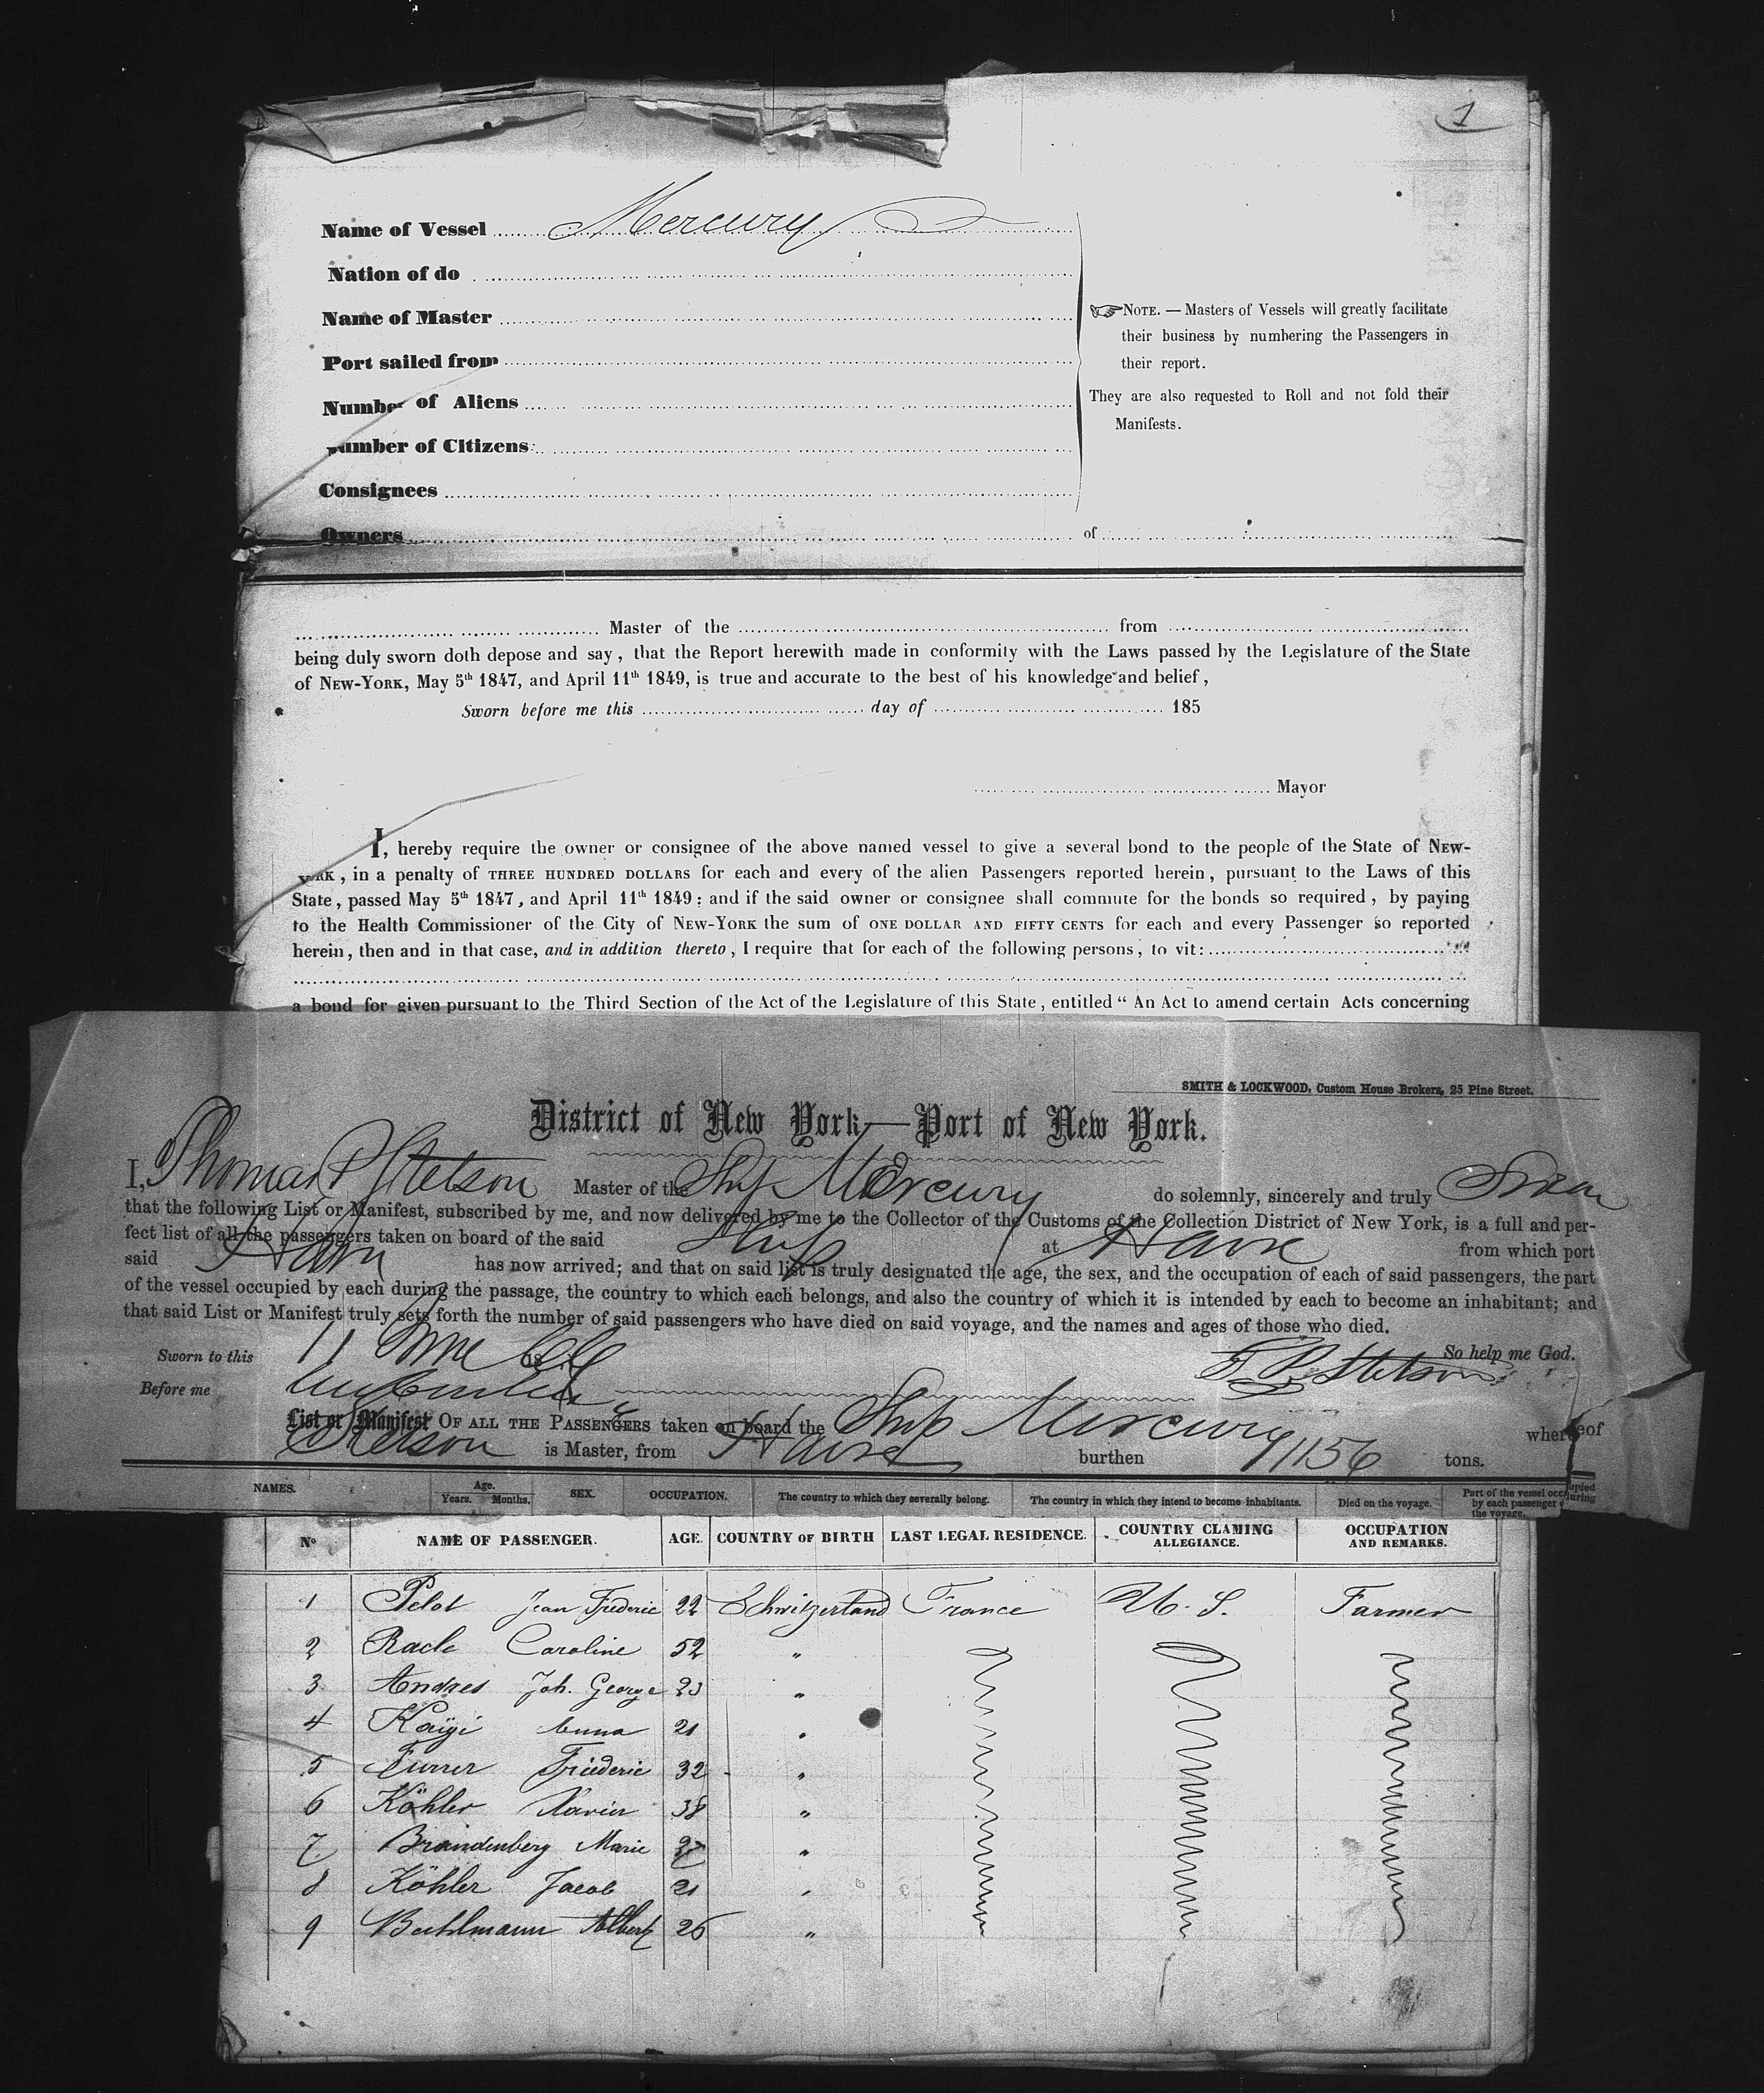 1
Name of Vessel Mercury
Nation of do
Name of Master
Port sailed from
Number of Aliens
Number of Citizens
Consignees
Owners of
NOTE. — Masters of Vessels will greatly facilitate
their business by numbering the Passengers in
their report.
They are also requested to Roll and not fold their
Manifests.
Master of the from
being duly sworn doth depose and say, that the Report herewith made in conformity with the Laws passed by the Legislature of the State
of NEW-YORK, May 5th 1847, and April 11th 1849, is true and accurate to the best of his knowledge and belief,
Sworn before me this day of 185
Mayor
I, hereby require the owner or consignee of the above named vessel to give a several bond to the people of the State of NEW-
YORK, in a penalty of THREE HUNDRED DOLLARS for each and every of the alien Passengers reported herein, pursuant to the Laws of this
State, passed May 5th 1847, and April 11th 1849: and if the said owner or consignee shall commute for the bonds so required, by paying
to the Health Commissioner of the City of NEW-YORK the sum of ONE DOLLAR AND FIFTY CENTS for each and every Passenger so reported
herein, then and in that case, and in addition thereto, I require that for each of the following persons, to vit:
a bond for given pursuant to the Third Section of the Act of the Legislature of this State, entitled “ An Act to amend certain Acts concerning
SMITH & LOCKWOOD, Custom House Brokers, 25 Pine Street.
District of New York—Port of New York.
I, Thomas P Stetson Master of the Ship Mercury do solemnly, sincerely and truly Swear
that the following List or Manifest, subscribed by me, and now delivered by me to the Collector of the Customs of the Collection District of New York, is a full and per-
fect list of all the passengers taken on board of the said Ship at Havre from which port
said has now arrived; and that on said list is truly designated the age, the sex, and the occupation of each of said passengers, the part
of the vessel occupied by each during the passage, the country to which each belongs, and also the country of which it is intended by each to become an inhabitant; and
that said List or Manifest truly sets forth the number of said passengers who have died on said voyage, and the names and ages of those who died.
Sworn to this 11 June 186 So help me God.
Before me T P Stetson
List or Manifest OF ALL THE PASSENGERS taken on board the Ship Mercury whereof
Stetson is Master, from Havre burthen 1156 tons.
NAMES. Age. Years. Months. SEX. OCCUPATION. The country to which they severally belong. The country in which they intend to become inhabitants. Died on the voyage. Part of the vessel occupied by each passenger during the voyage.
No NAME OF PASSENGER. AGE. COUNTRY OF BIRTH LAST LEGAL RESIDENCE. COUNTRY CLAMING ALLEGIANCE. OCCUPATION AND REMARKS.
1 Pelot Jean Frederic 22 Schwitzerland France U. S. Farmer
2 Rack Caroline 52 "
3 Andres Joh. George 23 "
4 Kägi Anna 21 "
5 Furrer Friederic 32 "
6 Köhler Xavier 38 "
7 Brandenberg Marie "
8 Köhler Jacob 21 "
9 Buhlmann Albert 26 "